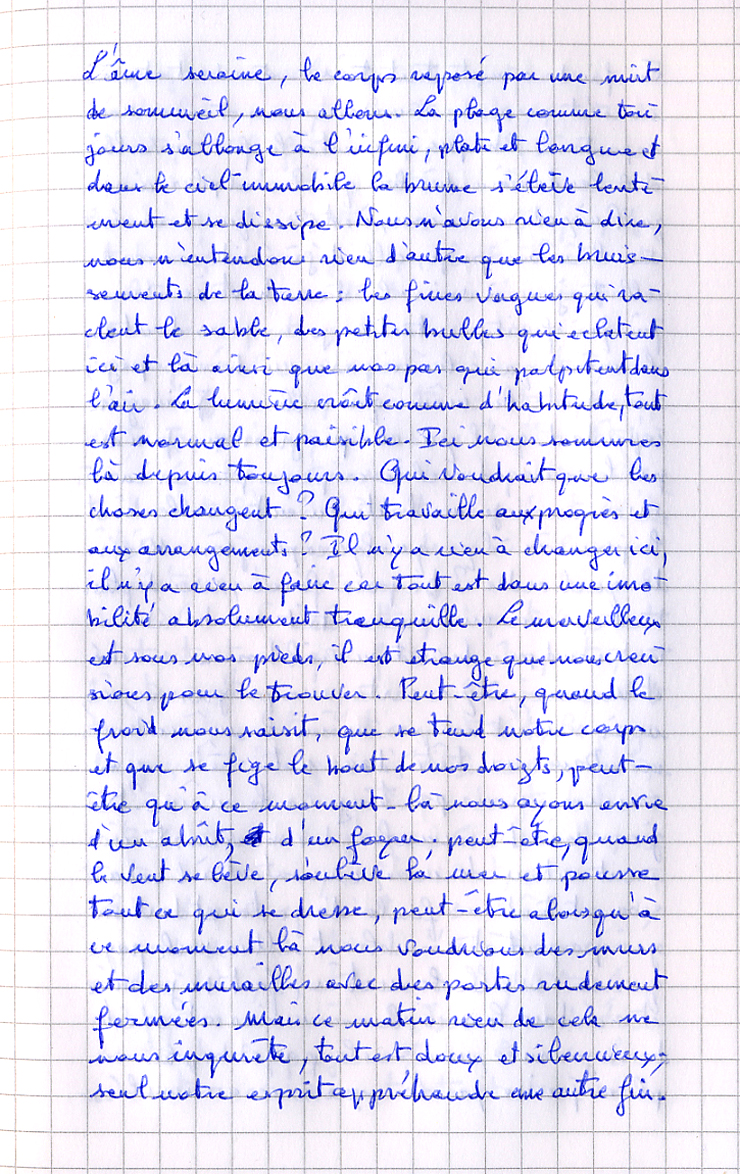 L'âme sereine, le corps reposé par une nuit
de sommeil, nous allons. La plage comme tou
jours s'allonge à l'infini, plate et longue et
dans le ciel immobile la brume s'élève lente-
ment et se dissipe. Nous n'avons rien à dire,
nous n'entendons rien d'autre que les bruis-
sements de la terre : les fines vagues qui ra-
clent le sable, des petites bulles qui eclatent
ici et là ainsi que nos pas qui palpitent dans
l'air. La lumière croît comme d'habitude, tout
est normal et paisible. Ici nous sommes
là depuis toujours. Qui voudrait que les
choses changent ? Qui travaille aux progrès et
aux arrangements ? Il n'y a rien à changer ici,
il n'y a rien à faire car tout est dans une imo-
bilité absolument tranquille. Le merveilleux
est sous nos pieds, il est etrange que nous creu
sions pour le trouver. Peut-être, quand le
froid nous saisit, que se tend notre corps
et que se fige le bout de nos doigts, peut-
être qu'à ce moment-là nous ayons envie
d'un abrit, d'un foyer ; peut-être, quand
le vent se lève, soulève la mer et pousse
tout ce qui se dresse, peut-être alors qu'à
ce moment là nous voudrions des murs
et des murailles avec des portes rudement
fermées. Mais ce matin rien de cela ne
nous inquiète, tout est doux et silencieux ;
seul notre esprit appréhende une autre fin.